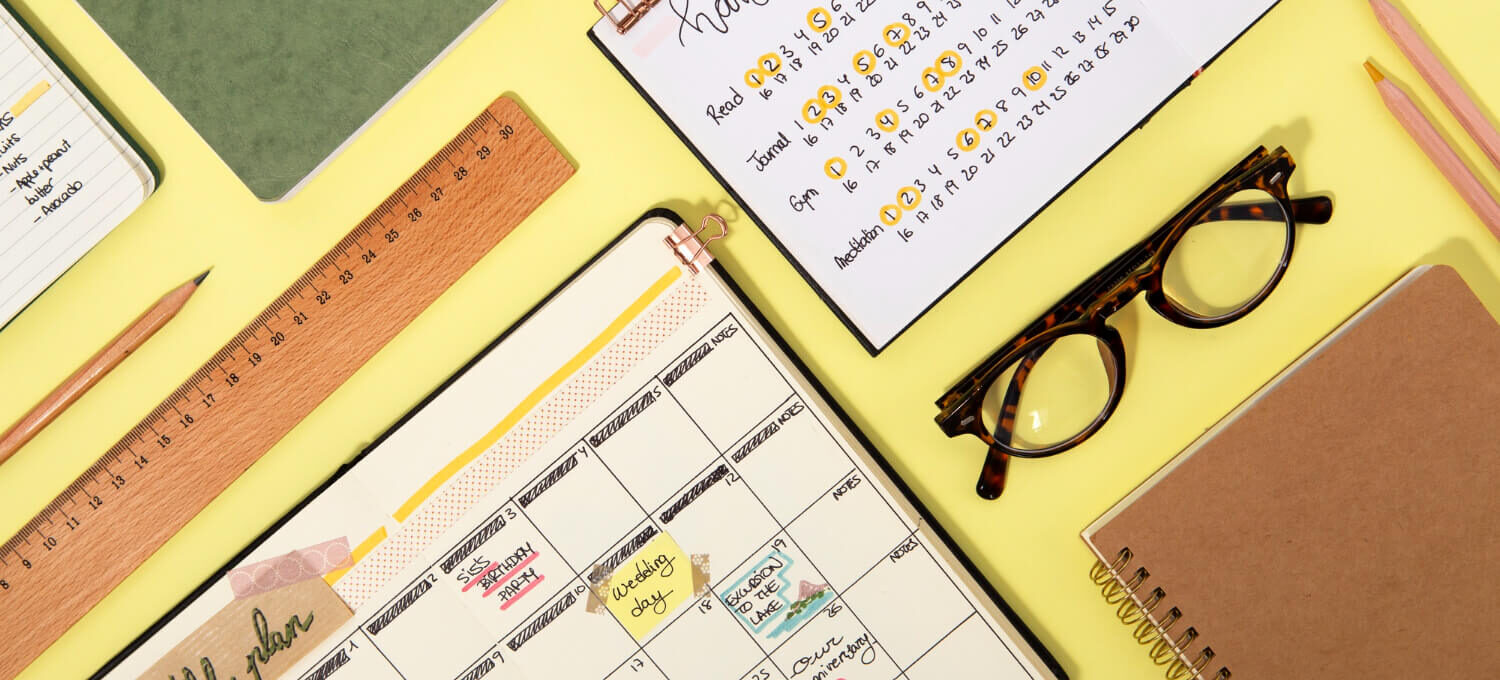 - Nuts
- Apple + peanut
butter
- Avocado
8 9 10 11 12 13 14 15 16 17 18 19 20 21 22 23 24 25 26 27 28 29 30
Read 1 2 3 4 5 6
16 17 18 19 20 21 22
Journal 1 2 3 4 5 6 7 8 9
16 17 18 19 20 21 22 23 24
Gym 1 2 3 4 5 6 7 8 9 10 11 12
16 17 18 19 20 21 22 23 24 25 26 27 28
Meditation 1 2 3 4 5 6 7 8 9 10 11 12 13 14 15
16 17 18 19 20 21 22 23 24 25 26 27 28 29 30
plan
1 2 3 4 5 NOTES
SiS'S
BIRTHDAY
PARTY
9 10 12 NOTES
Wedding
day
17 18 19 NOTES
EXCURSION
TO THE
LAKE
25 26 NOTES
our
anniversary